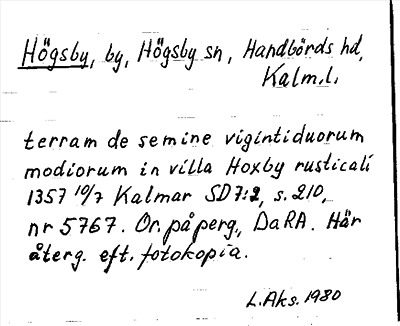 Högsby, by, Högsby sn, Handbörds hd,
Kalm.l.
terram de semine vigintiduorum
modiorum in villa Hoxby rusticali
1357 10/7 Kalmar SD7:2, s. 210,
nr 5767. Or. på perg., DaRA. Här
återg. eft. fotokopia.
L.Aks. 1980